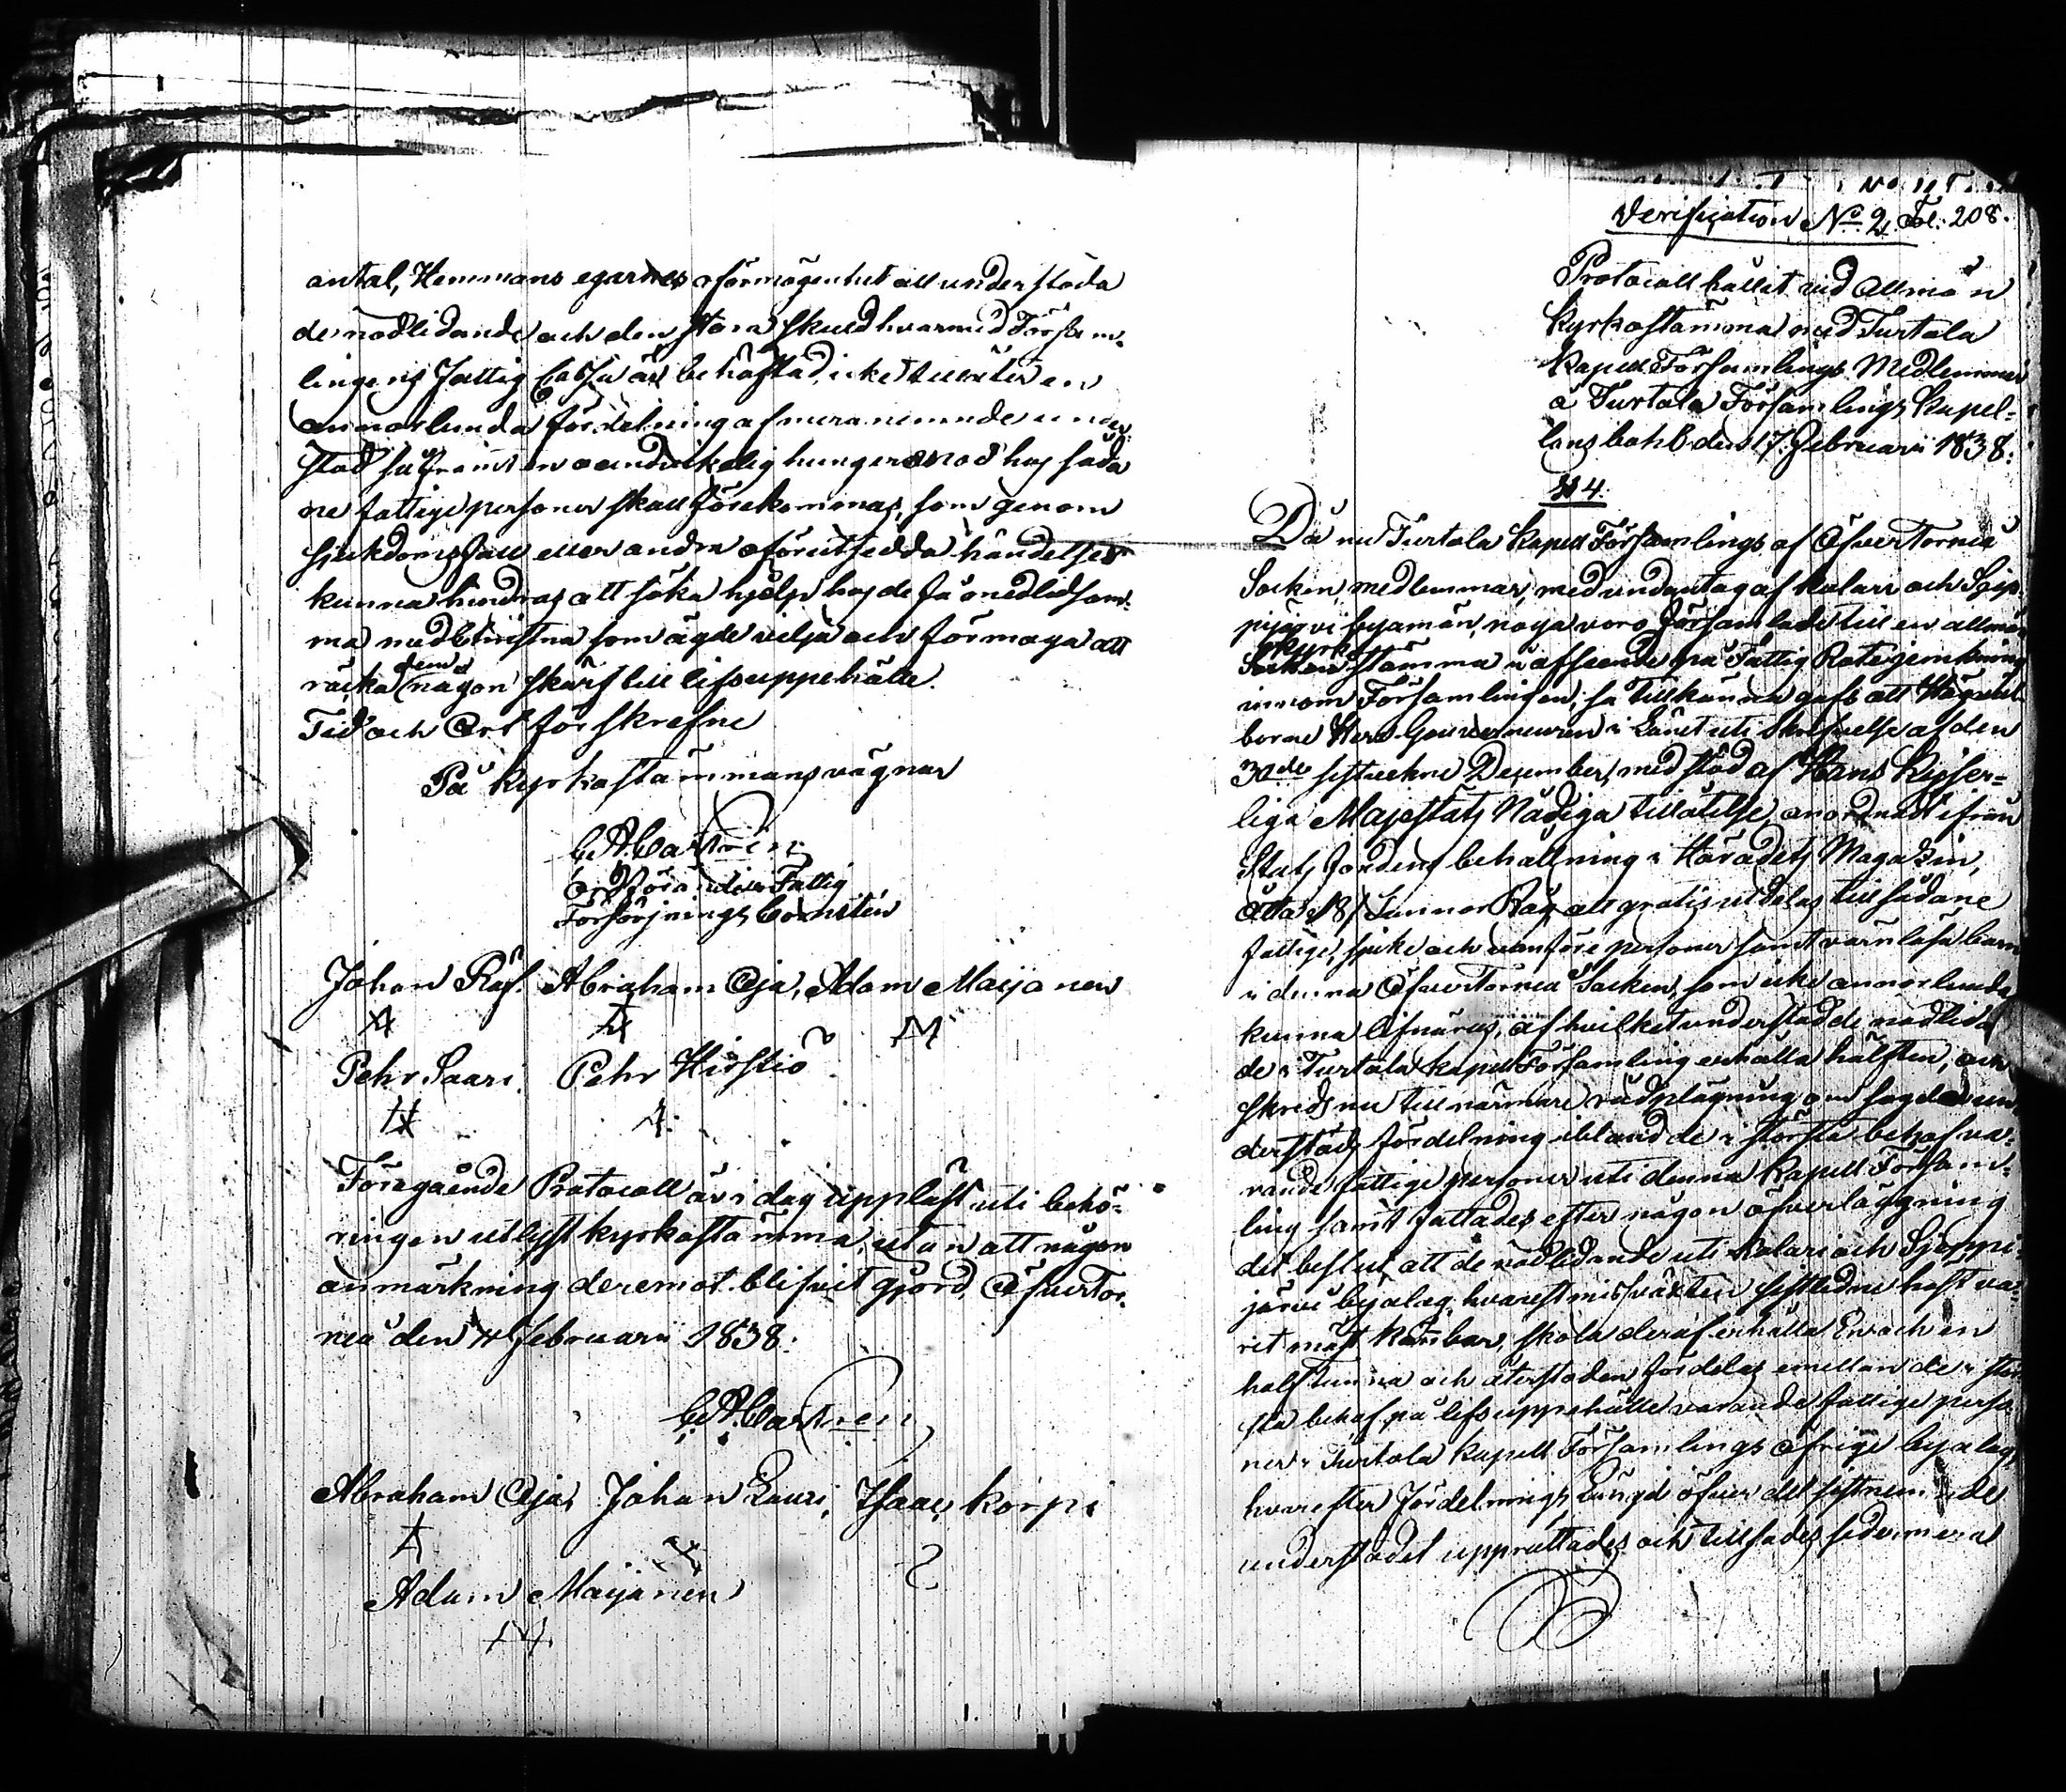 antal, Hemmans egarnes oförmögenhet att understöda
de nödlidande och den stora skuld hvarmed Försam-
lingens Fattig Cassa är behäftad, icke tillåter en
annorlunda fördelning af meranemnde under-
stöd så framt en oundvikelig hungersnöd hos såda
ne fattige personer skall förekommas, som genom
sjukdomsfall eller andra oförutsedda händelser
kunna hindras att söka hjelp hos de få medlidsam-
ma medchristna som ägde vilja och förmåga att
räcka dem någon skärf till lifsuppehälle.
Tid och Ort förskrefne
På kyrkostämmans vägnar
C. A. Castrén
Ordförande i Fattig
Försörjnings Comitén
Johan Räf. Abraham Oja, Adam Maijanen
Pehr Saari. Pehr Hirstiö
Föregående Protocoll är i dag uppläst uti behö-
ringen utlyst kyrkostämma, utan att någon
anmärkning deremot blifvit gjord, ÖfverTor-
neå den 4 februarii 1838.
C. A. Castren
Abraham Oja, Johan Lauri, Isaac Korpi
Adam Maijanen
Verification No. 2. Fol. 208.
Protocoll hållit vid Allmän
Kyrkostämma med Turtola
Kapell Församlings Medlemmar
å Turtola Församlings Kapel-
lans bohl den 17 Februarii 1838.
§ 4.
Då nu Turtola Kapell Församlings af ÖfverTorneå
Socken medlemmar, med undantag af Kolari och Sjep
pijärvi byamän, noga voro församlade till en allmän
Kyrko
Socken stämma i afseende på Fattig Rote jemkning
innom Församlingen; så tillkänna gafs att Högvel-
borne Herr Gouverneuren i Länet uti Skrifvelse af den
30de sistvekne December, med stöd af Hans Kejser-
liga Majestäts Nådiga tillåtelse, anordnadt ifrån
Stats fondens behållning i Häradets Magazin,
Åtta /8/ Tunnor Råg att gratis utdelas till sådane
fattige, sjuke och vanföre personer samt värnlösa barn
i denna ÖfverTorneå Socken, som icke annorlunda
kunna lifnäras, af hvilket understöd de nödlidan
de i Turtola kapell Församling erhålla hälften, och
skreds nu till närmare rådplägning om sagde un-
derstöds fördelning ibland de i största behof va-
rande fattige personer uti denna Kapell Försam-
ling samt fattades efter någon öfverläggning
det beslut att de nödlidande uti Kolari och Sjeppi-
järvi byalag, hvarest missväxten sistledne höst va-
rit mäst kännbar, skola deraf erhålla En och en
half tunna och återstoden fördelas emellan de i stör
sta behof på lifsuppehälle varande fattige perso
ner i Turtola kapell Församlings öfrige byalag,
hvarefter fördelnings Längd öfver det sistnemnde
understödet upprättades och tillsades sedermera